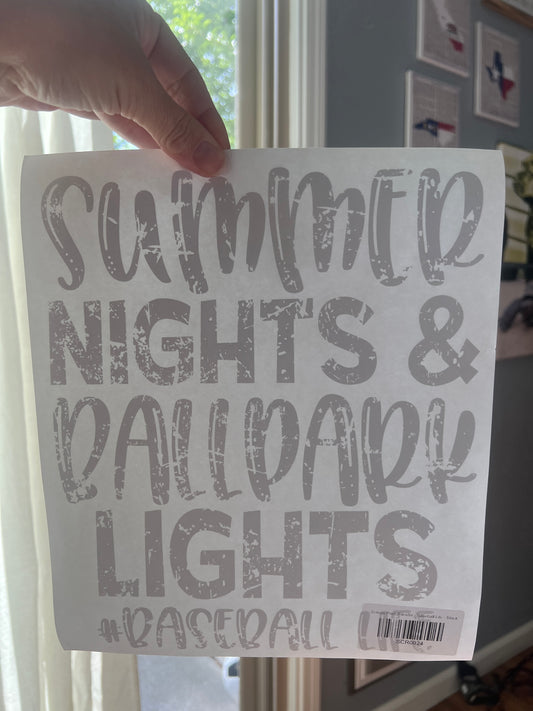 SUMMER
NIGHTS &
BALLPARK
LIGHTS
#BASEBALL LI
SCR0024